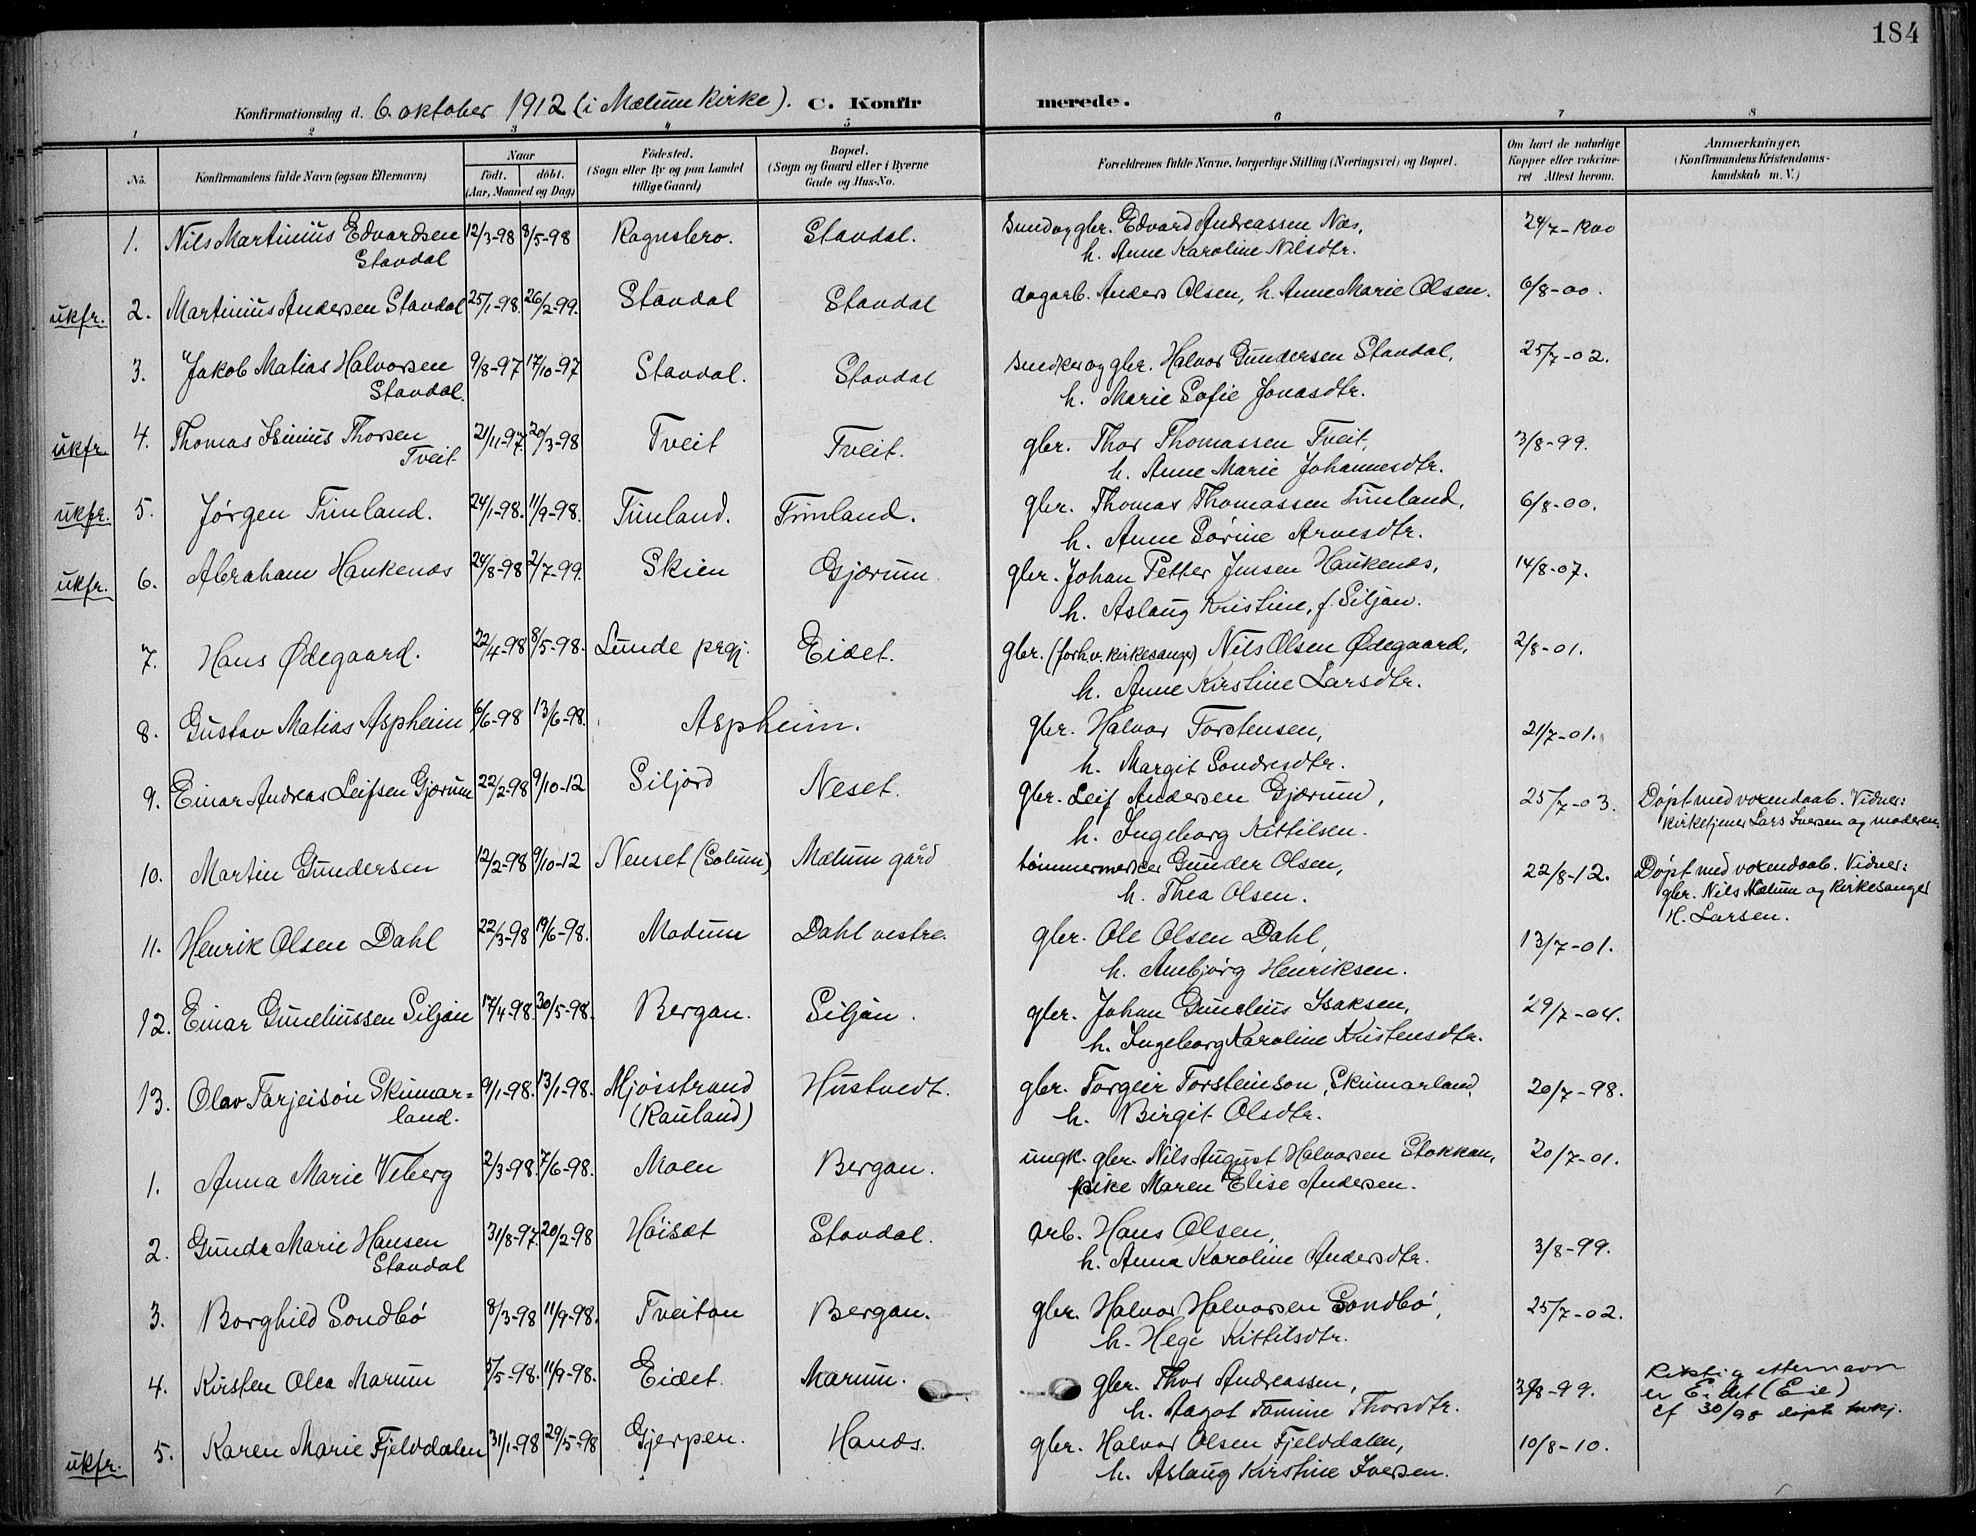 184
Konfirmationsdag d. 6. oktober 1912 (i Mælum kirke). C. Konfirmerede.
1 2 3 4 5 6 7 8
No. Konfirmandens fulde Navn (ogsaa Efternavn) Naar født. døbt. (Aar, Maaned og Dag) Fødested. (Sogn eller By og paa Landet tillige Gaard) Bopæl. (Sogn og Gaard eller i Byerne Gade og Hus-No. Forældrenes fulde Navne, borgerlige Stilling (Næringsvei) og Bopæl. Om havt de naturlige Kopper eller vakcineret Attest herom. Anmærkninger, (Konfirmandens Kristendomskundskab m. V.)
1. Nils Martinius Edvardsen 12/3-98 8/5-98 Rognsbro. Stavdal. smed og gbr. Edvard Andreassen Næs, 24/7-1900
Stavdal h. Anne Karoline Nilsdtr.
ukfr. 2. Martinius Andersen Stavdal 25/1-98. 26/2-99. Stavdal Stavdal dagarb. Anders Olsen, h. Anne Marie Olsen. 6/8-00.
3. Jakob Matias Halvorsen 9/8-97 17/10-97 Stavdal. Stavdal snedker og gbr. Halvor Gundersen Stavdal, 25/7-02.
Stavdal. h. Marie Sofie Jonasdtr.
ukfr. 4. Thomas Isinius Thorsen 21/11-97. 20/3-98 Tveit Tveit. gbr. Thor Thomassen Tveit, 3/8-99.
Tveit h. Anne Marie Johannesdtr.
ukfr. 5. Jørgen Timland. 24/1-98. 11/9-98. Timland. Timland. gbr. Thomas Thomassen Timland, 6/8-00.
h. Anne Sørine Arnesdtr.
ukfr. 6. Abraham Haukenæs 24/8-98 2/7-99. Skien Gjærum. gbr. Johan Petter Jensen Haukenæs, 14/8-07.
h. Aslaug Kristine, f. Siljan.
7. Hans Ødegaard. 22/4-98 8/5-98. Lunde prgj. Eidet. gbr. (forhv. kirkesanger) Nils Olsen Ødegaard, 2/8-01.
h. Anne Kirstine Larsdtr.
8. Gustav Matias Aspheim 6/6-98 13/6-98. Aspheim. gbr. Halvor Torstensen, 21/7-01.
h. Margit Sondresdtr.
9. Einar Andreas Leifsen Gjærum 22/2-98 9/10-12 Siljord Neset. gbr. Leif Andersen Gjærum, 25/7-03. Døpt med voxendaab. Vidner:
h. Ingeborg Kittilsen. kirketjener Lars Iversen og moderen.
10. Martin Gundersen 12/2-98 9/10-12 Nenset (Solum) Mælum gård tømmermerker Gunder Olsen, 22/8-12. Døpt med voxendaab. Vidner:
h. Thea Olsen. gbr. Nils Mælum og kirkesanger
H. Larsen.
11. Henrik Olsen Dahl 22/3-98 19/6-98. Modum Dahl vestre. gbr. Ole Olsen Dahl, 13/7-01.
h. Anbjørg Henriksen.
12. Einar Guneliussen Siljan 17/4-98. 30/5-98. Bergan. Siljan. gbr. Johan Gunelius Isaksen, 29/7-04.
h. Ingeborg Karoline Kristensdtr.
13. Olav Tarjeisøn Skinnar= 9/1-98. 13/1-98. Mjøsstrand Hustvedt. gbr. Torgeir Torsteinson, Skinnarland, 20/7-98.
land. (Rauland) h. Birgit Olsdtr.
1. Anna Marie Viberg 2/3-98. 7/6-98. Moen Bergan. ungk. gbr. Nils August Halvorsen Stokkan, 20/7-01.
pike Maren Elise Andersen.
2. Gunda Marie Hansen 31/8-97. 20/2-98 Høisæt Stavdal. arb. Hans Olsen, 3/8-99.
Stavdal h. Anna Karoline Andersdtr.
3. Borghild Sondbø 8/3-98 11/9-98. Tveitan Bergan. gbr. Halvor Halvorsen Sondbø, 25/7-02.
h. Hege Kittilsdtr.
4. Kirsten Olea Marum 5/5-98. 11/9-98. Eidet. Marum. gbr. Thor Andreassen, 3/8-99. Riktig etternavn
h. Aagot Tomine Thorsdtr. er Eidet (Eie)
cf 30/98 døpte kvkj.
ukfr. 5. Karen Marie Fjelddalen 31/1-98 29/5-98 Gjerpen. Hanæs. gbr. Halvor Olsen Fjelddalen, 10/8-10.
h. Aslaug Kirstine Iversen.